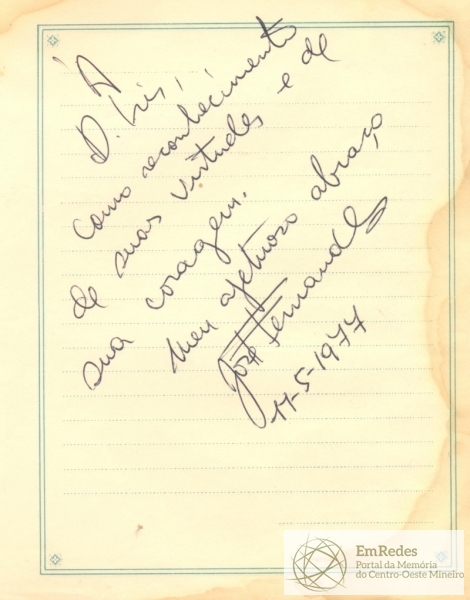 À
D. Iris,
como reconhecimento
de suas virtudes e de
sua coragem.
Meu afetuoso abraço
José Fernandes
17-5-1977
EmRedes
Portal da Memória
do Centro-Oeste Mineiro